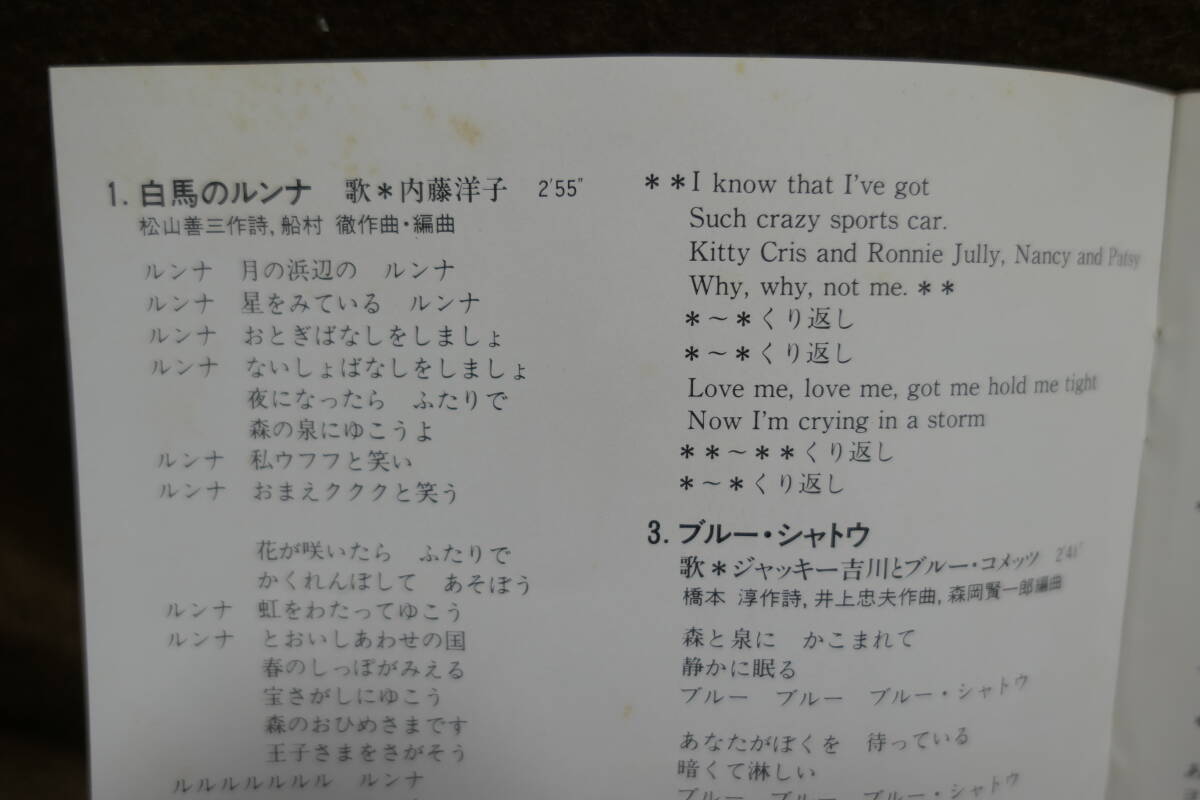 1. 白馬のルンナ　歌＊内藤洋子　2'55"
松山善三作詩, 船村 徹作曲・編曲
ルンナ　月の浜辺の　ルンナ
ルンナ　星をみている　ルンナ
ルンナ　おとぎばなしをしましょ
ルンナ　ないしょばなしをしましょ
夜になったら　ふたりで
森の泉にゆこうよ
ルンナ　私ウフフと笑い
ルンナ　おまえクククと笑う
花が咲いたら　ふたりで
かくれんぼして　あそぼう
ルンナ　虹をわたってゆこう
ルンナ　とおいしあわせの国
春のしっぽがみえる
宝さがしにゆこう
森のおひめさまです
王子さまをさがそう
ルルルルルルル　ルンナ
＊＊I know that I've got
Such crazy sports car.
Kitty Cris and Ronnie Jully, Nancy and Patsy
Why, why, not me.＊＊
＊～＊くり返し
＊～＊くり返し
Love me, love me, got me hold me tight
Now I'm crying in a storm
＊＊～＊＊くり返し
＊～＊くり返し
3. ブルー・シャトウ
歌＊ジャッキー吉川とブルー・コメッツ　2'41"
橋本 淳作詩, 井上忠夫作曲, 森岡賢一郎編曲
森と泉に　かこまれて
静かに眠る
ブルー　ブルー　ブルー・シャトウ
あなたがぼくを　待っている
暗くて淋しい
ブルー　ブルー　ブルー・シャトウ